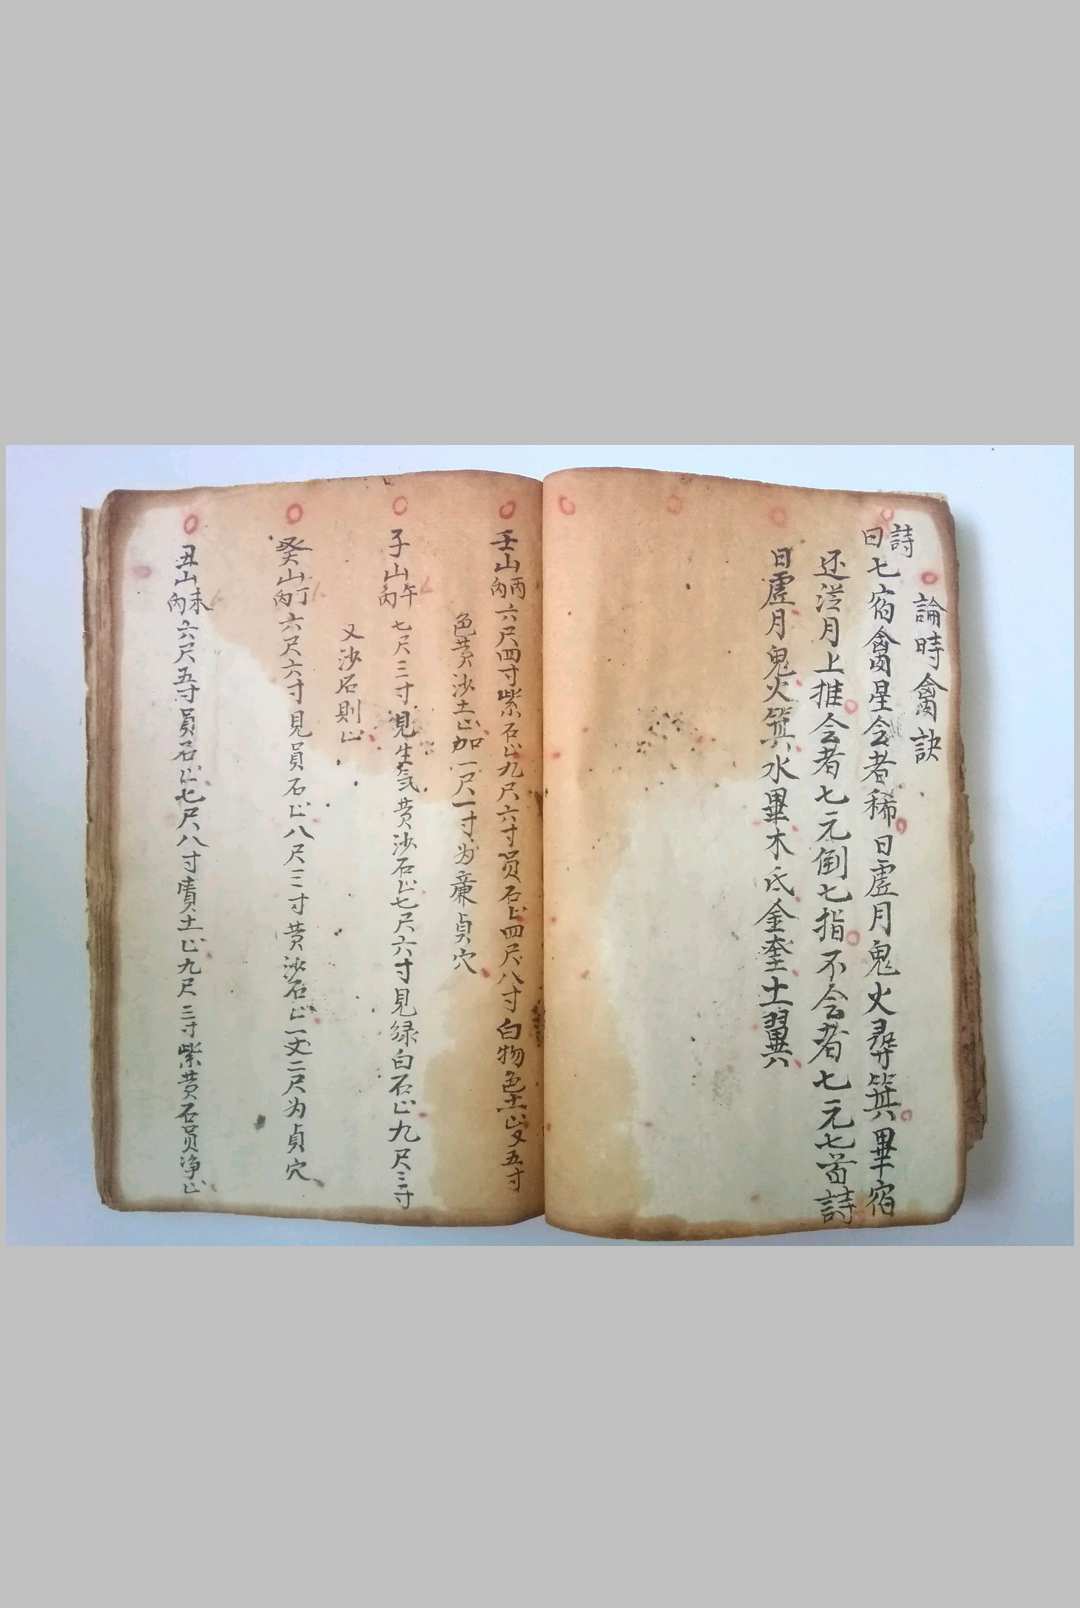 論時禽訣
詩曰七宿禽星会者稀日虛月鬼火尋箕畢宿
还從月上推会者七元倒七指不会者七元七首詩
日虛月鬼火箕水畢木氐金奎土翼
壬山丙向六尺四寸紫石止九尺六寸員石止四尺八寸白物色土止又五寸
色黄沙土止加一尺一寸为廉貞穴
子山午向七尺三寸見生氣黄沙石止七尺六寸見绿白石止九尺三寸
又沙石則止
癸山丁向六尺六寸見員石止八尺三寸黄沙石止一丈二尺为貞穴
丑山未向六尺五寸員石止七尺八寸土止九尺三寸紫黄石員净止